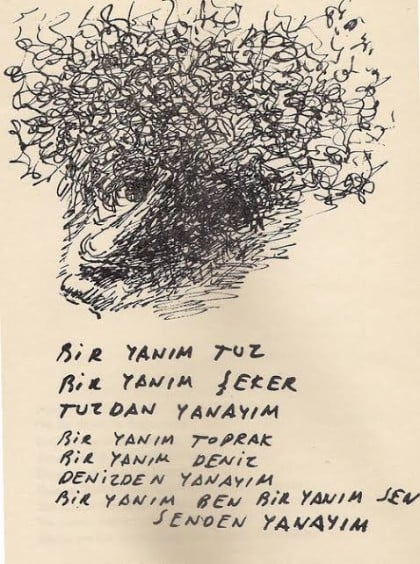 BİR YANIM TUZ
BİR YANIM ŞEKER
TUZDAN YANAYIM
BİR YANIM TOPRAK
BİR YANIM DENİZ
DENİZDEN YANAYIM
BİR YANIM BEN BİR YANIM SEN
SENDEN YANAYIM